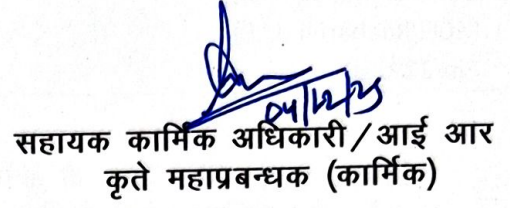 04/12/25
सहायक कार्मिक अधिकारी/आई आर
कृते महाप्रबन्धक (कार्मिक)